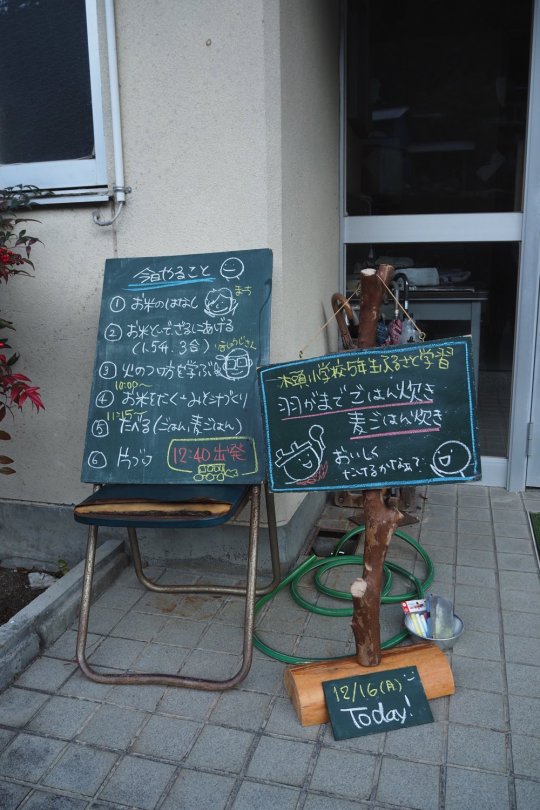 今日やること
① お米のはなし まち
② お米といでざるにあげる
(1.5升 3合)
③ 火のつけ方を学ぶ
10:00〜
④ お米をたく・みそ汁づくり
11:15〜
⑤ たべる(ごはん、麦ごはん)
⑥ 片づけ
12:40 出発
木頭小学校5年生ふるさと学習
羽がまでごはん炊き
麦ごはん炊き
おいしく
だけるかなぁ?
12/16(月)
Today!